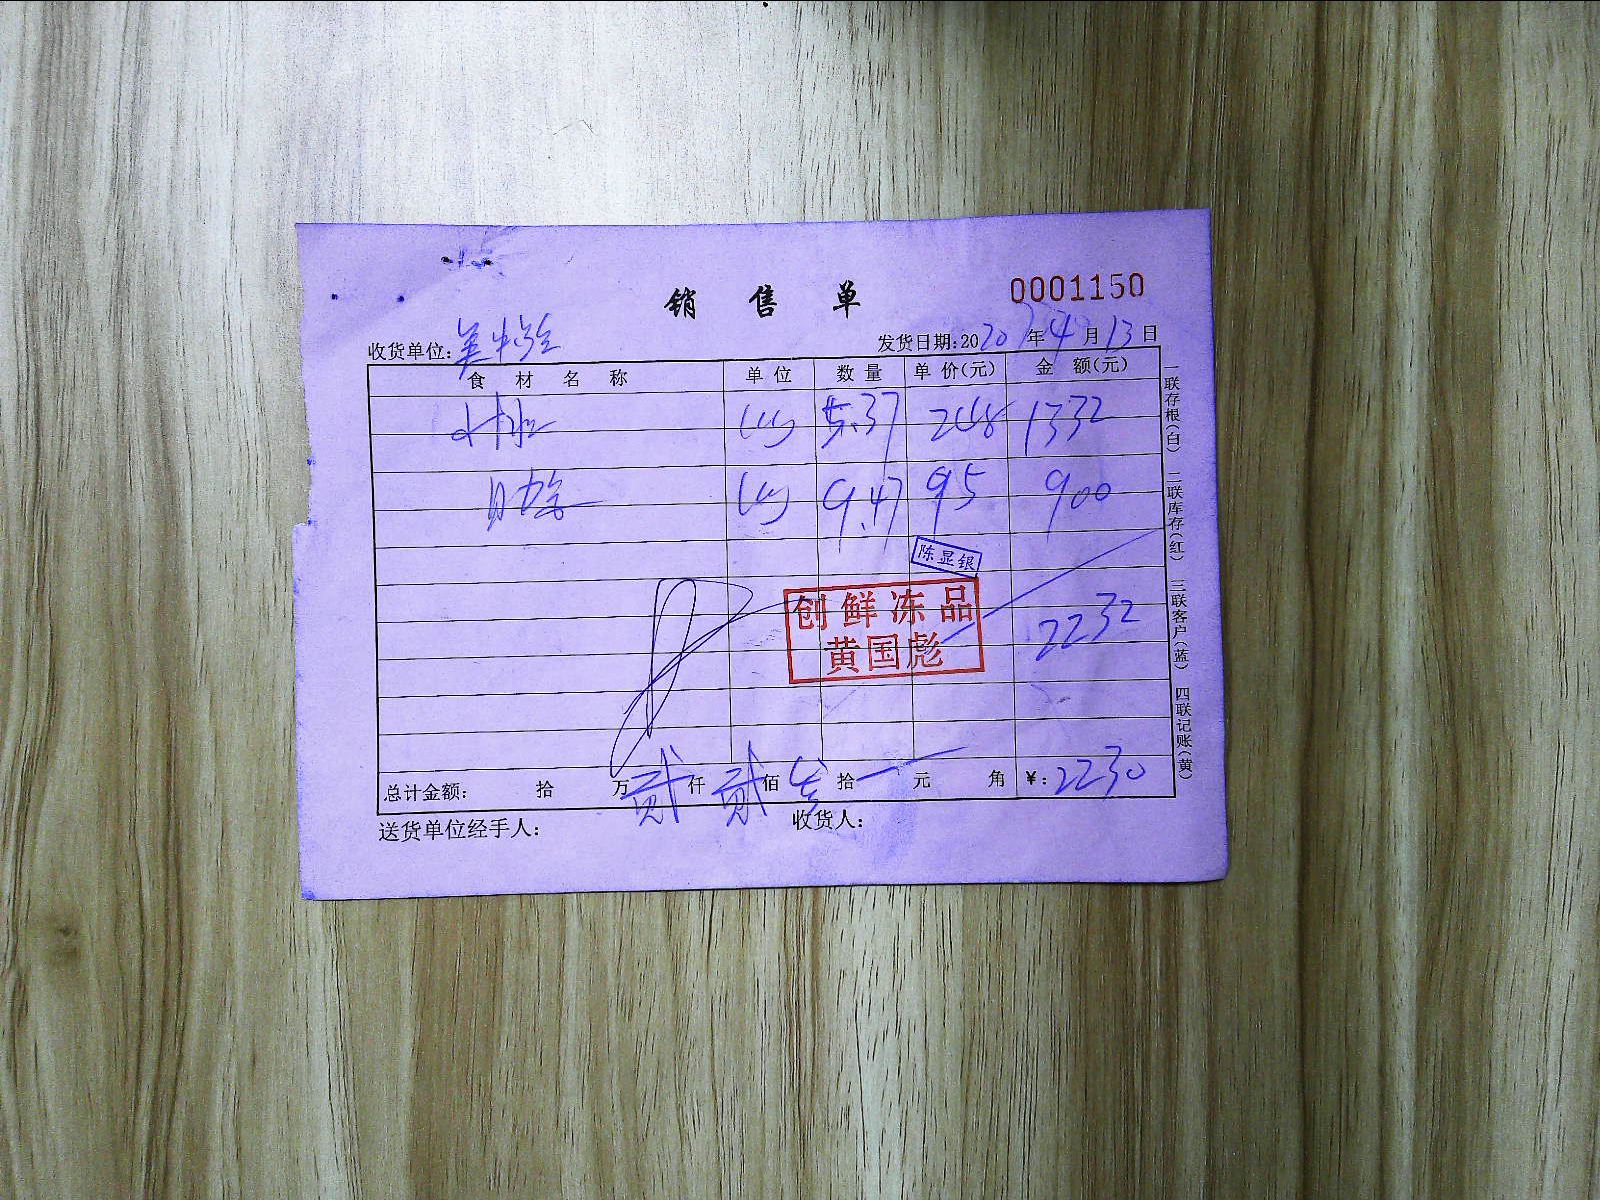 销售单 0001150
收货单位: 发货日期:2020年4月13日
食材名称 单位 数量 单价(元) 金额(元)
5.37 248 1332
9.47 95 900
陈显银
创鲜冻品
黄国彪
2232
总计金额: 拾 万贰仟贰佰叁拾 元 角 ¥:2230
送货单位经手人: 收货人:
一联存根(白) 二联库存(红) 三联客户(蓝) 四联记账(黄)